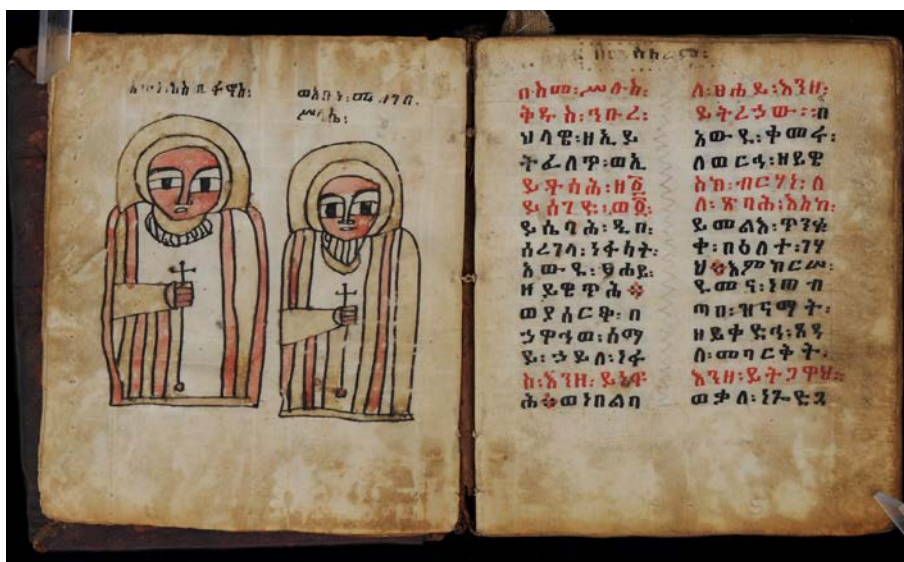 በአመ፡ሥሉስ፡
ቅዱስ፡ዓቡረ፡
ህላዌ፡ዘኢይ
ትፈለጥ፡ወኢ
ዘ፩
ይሰገድ፡ወ፩፡
ይሴባሕ፡ዲበ፡
ሰረገላ፡ነፋሳት፡
አውዱ፡ፀሐይ፡
ዘይዌጥሕ፨
ወያሰርቅ፡በ
ኃዋኅወ፡ሰማ
ይ፡ኃይለ፡ነፋ
ስ፡እንዘ፡ይነፍ
ሕ፨ወነበልባ
ለ፡ፀሐይ፡እንዘ፡
ይትረኃው፡፡በ
አውዱ፡ቀመራ
ለወርኅ፡ዘይዌ
ስክ፡ብርሃነ፡ለ
ለ፡ጽባሕ፡እስከ፡
ይመልእ፡ጥንቁ
ቀ፡በዕለተ፡ገሃ
ህ፨እምክርሠ፡
ደመና፡ነጠብ
ጣበ፡ዝናማት፡
ዘይቀድኅ፡ጸዳ
ለ፡መባርቅት፡
እንዘ፡ይትጋዋህ፡፡
ወቃለ፡ነጐድጓ